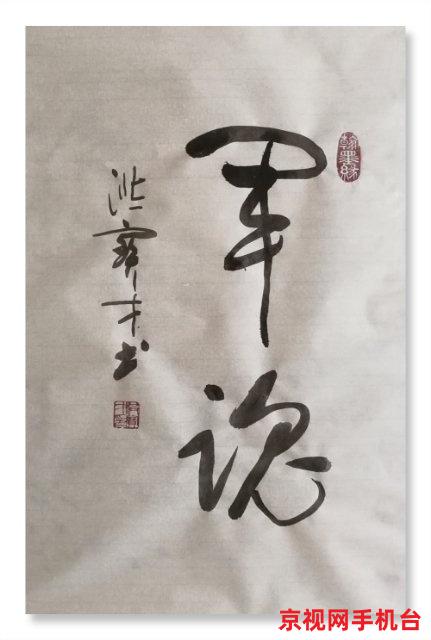 翰墨缘
军魂
洪 才书
京视网手机台